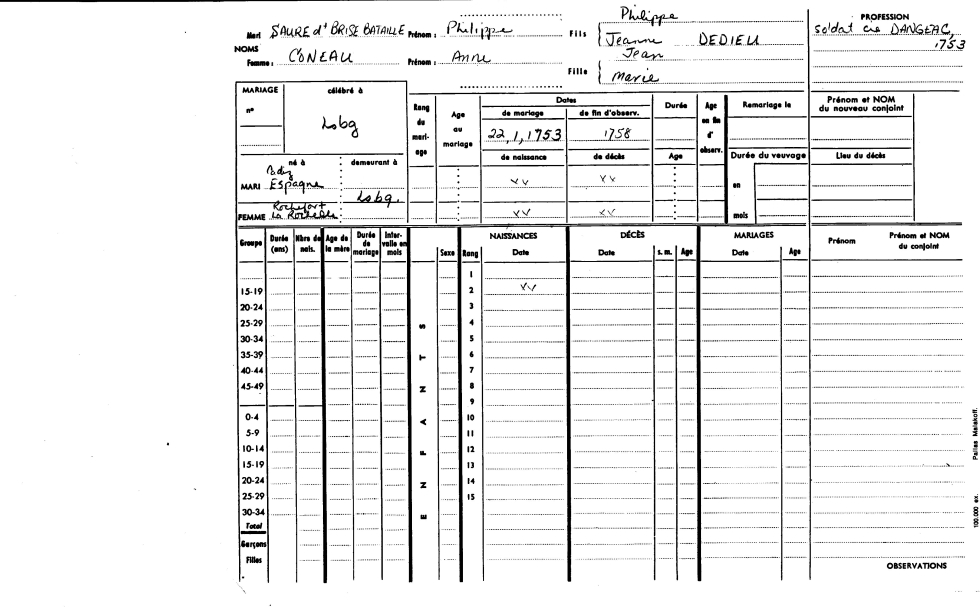 Philippe
PROFESSION
Mari SAURE dt BRISE BATAILLE Prénom : Philippe Fils { Jeanne DEDIEU
soldat cie DANGEAC,
1753
NOMS
Femme : CONEAU Prénom : Anne Fille { Jean
Marie
MARIAGE célébré à
n°
Lsbg
Rang du mari- age
Age au mariage
Dates
de mariage de fin d'observ.
22,1,1753 1758
de naissance de décès
Durée
Age
Age en fin d' observ.
Remariage le
Durée du veuvage
en
mois
Prénom et NOM
du nouveau conjoint
Lieu du décès
né à demeurant à
MARI Espagne vv vv
Lsbg.
Rochefort
FEMME La Rochelle vv vv
Groupe Durée (ans) Nbre de nais. Age de la mère Durée de mariage Inter- valle en mois
ENFANTS
Sexe Rang
NAISSANCES
Date
DÉCÈS
Date s. m. Age
MARIAGES
Date Age
Prénom
Prénom et NOM
du conjoint
1
15-19 2 vv
20-24 3
25-29 4
30-34 5
35-39 6
40-44 7
45-49 8
9
0-4 10
5-9 11
10-14 12
15-19 13
20-24 14
25-29 15
30-34
Total
Garçons
Filles
OBSERVATIONS
100 000 ex. Pairies Malakoff.